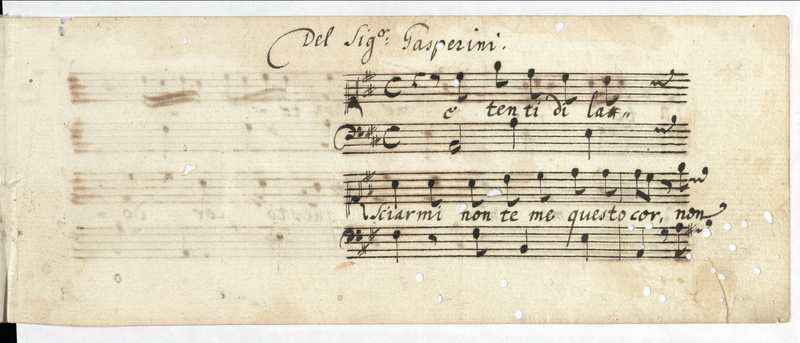 Del Sig.or: Gasperini.
e tenti di las=
sciarmi non te me questo cor, non